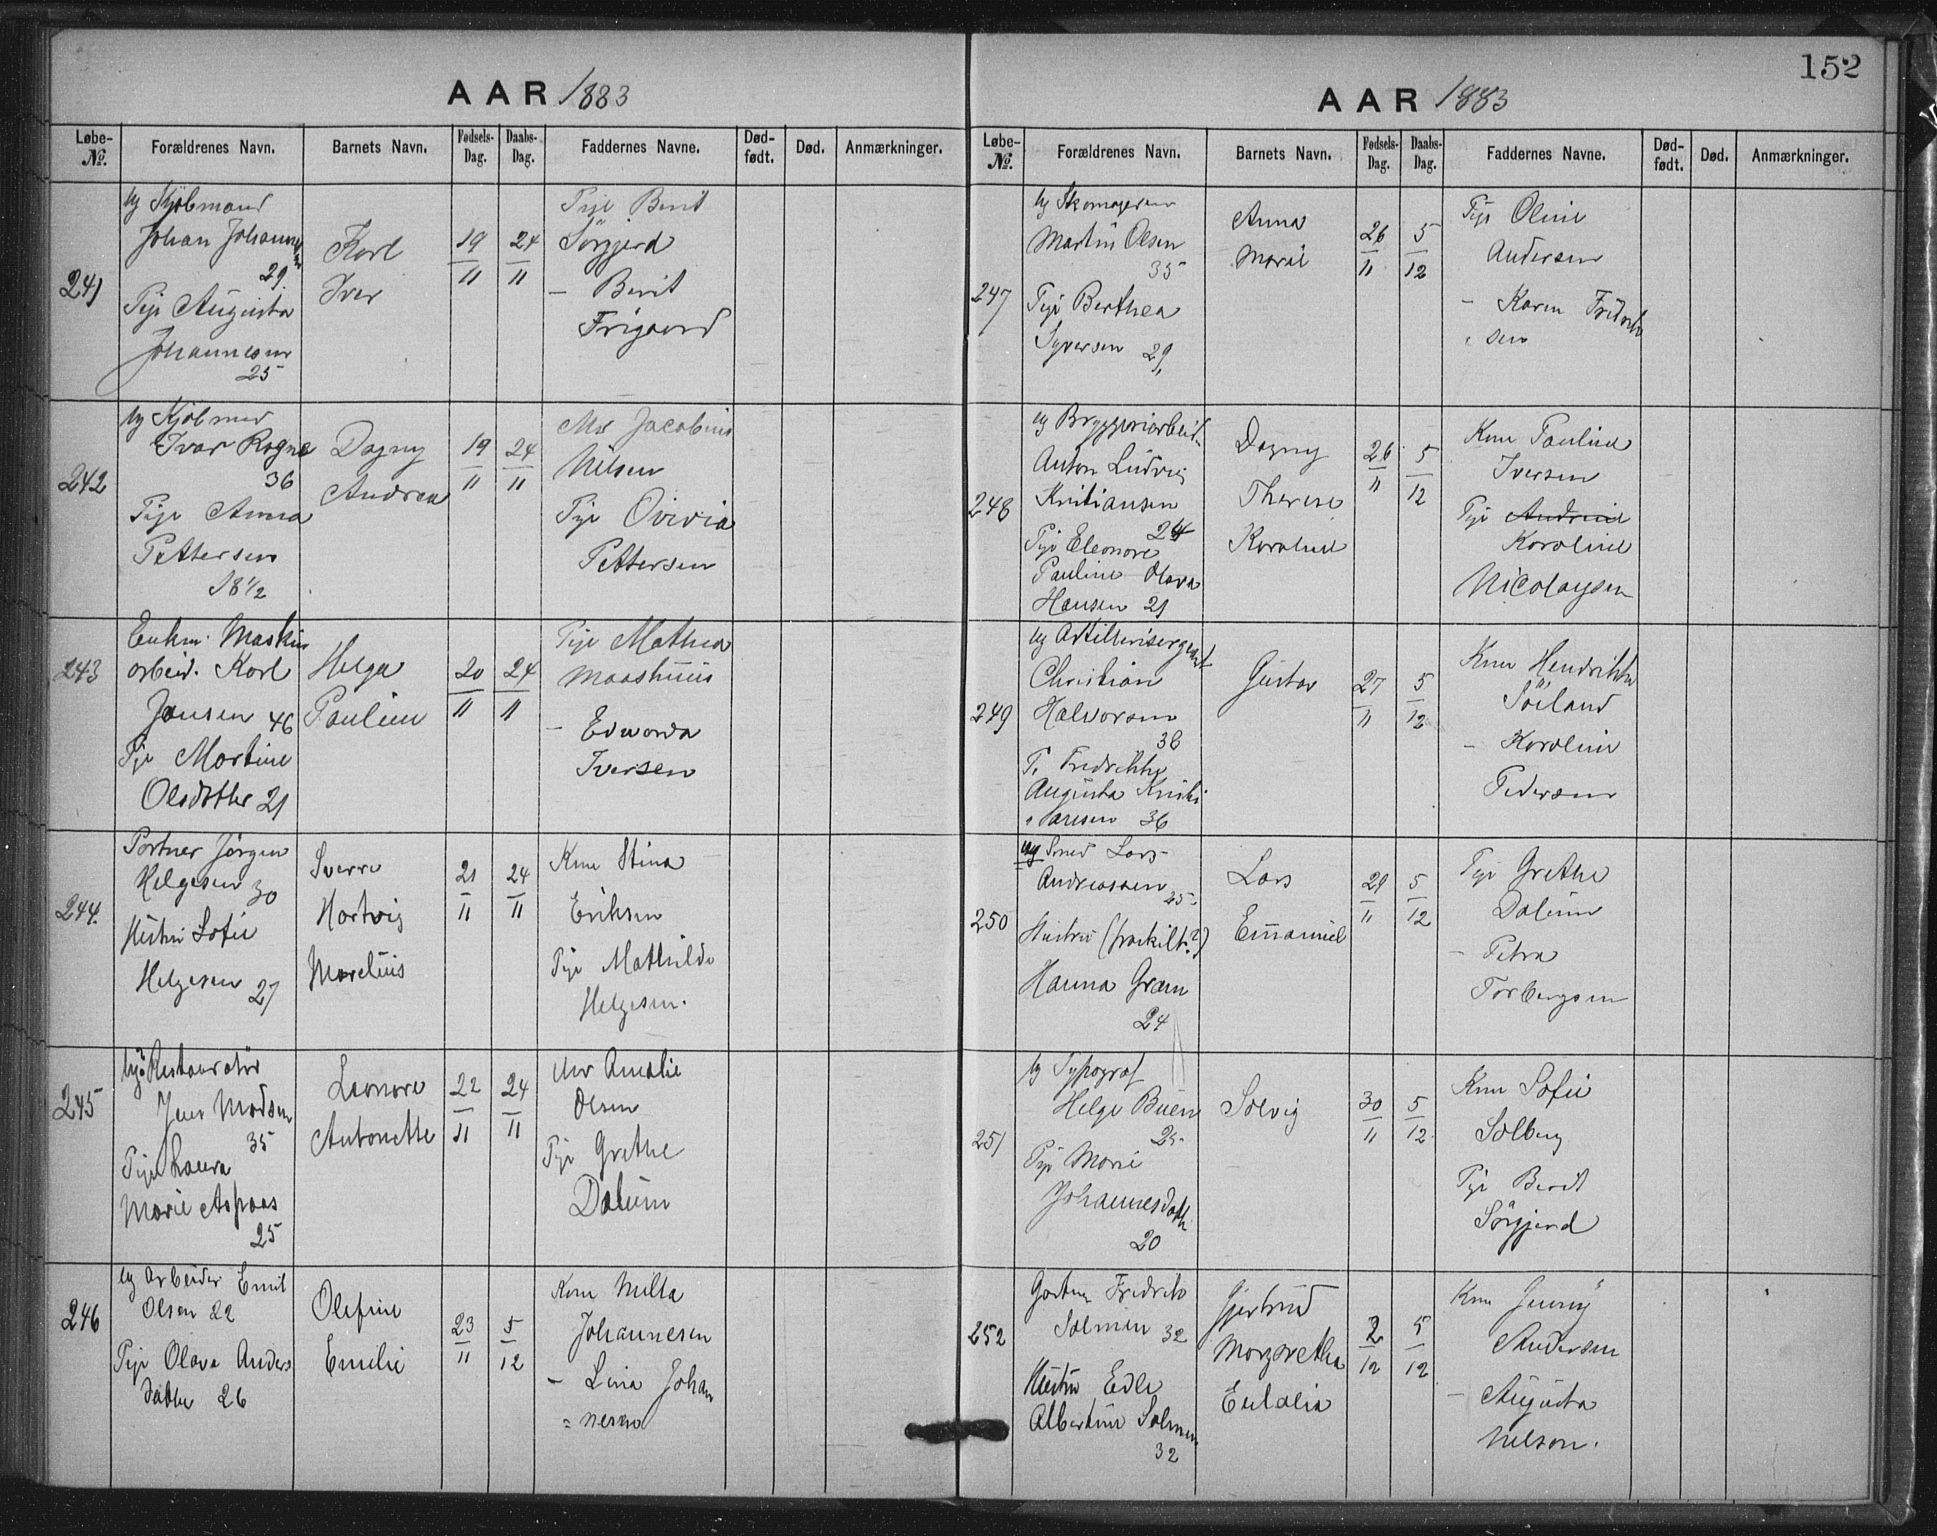 152
AAR 1883
Løbe-No.
Forældrenes Navn.
Barnets Navn.
Fødsels-Dag.
Daabs-Dag.
Faddernes Navne.
Død-født.
Død.
Anmærkninger.
241
Ug Kjøbmand
Johan Johannesen
29.
Pige Augusta
Johannesen
25
Karl
Iver
19/11
24/11
Pige Berit
Sørgjerd
— Berit
Frigaard
242
Ug Kjøbmd
Ivar Rogne
36
Pige Anna
Pettersen
18 1/2
Dagny
Andrea
19/11
24/11
Jacobine
Nilsen
Pige
Pettersen
243
Enkm. Maskin
arbeid. Karl
Jansen 46
Pige Martine
Olsdatter 21
Helga
Pauline
20/11
24/11
Pige Mathea
— Edvarda
Iversen
244.
Portner Jørgen
Helgesen 30
Hustru Sofie
Helgesen 27
Sverre
Hartvig
Marelius
21/11
24/11
Kone Stina
Eriksen
Pige Mathilde
Helgesen.
245
Ug. Restauratør
Jens Madsen
35
Pige Laura
Marie Aspaas
25
Leonore
Antonette
22/11
24/11
Amalie
Olsen
Pige Grethe
Dalum
246
Ug Arbeider Emil
Olsen 22
Pige Olava Anders
datter 26
Olefine
Emilie
23/11
5/12
Kone Milla
Johannesen
— Lina Johan
= nesen
AAR 1883
Løbe-No.
Forældrenes Navn.
Barnets Navn.
Fødsels-Dag.
Daabs-Dag.
Faddernes Navne.
Død-født.
Død.
Anmærkninger.
247
Ug Skomagersv
Martin Olsen
35
Pige Berthea
Syversen 29,
Anna
Marie
26/11
5/12
Pige Oline
Andersen
— Karen Fredrik
sen
248
Ug Bryggeriarbeid.
Anton Ludvig
Kristiansen
24
Pige Eleonore
Pauline Olava
Hansen 21
Dagny
Therese
Karoline
26/11
5/12
Kone Pauline
Iversen
Pige Andrine
Karoline
Nicolaysen
249
Ug Artillerisergeant
Christian
Halvorsen
36
P. Fredrikke
Augusta Kristi
ansen 36
Gustav
27/11
5/12
Kone Hendrikke
Søiland
— Karoline
Pedersen
250
Ug Smed Lars
Andreassen
25
Hustru (fraskilt?)
Hanna Gram
24
Lars
Emanuel
29/11
5/12
Pige Grethe
Dalum
— Petra
Torbergsen
251
Ug Typograf
Helge Buen
25
Pige Marie
Johannesdatt
20
Solvig
30/11
5/12
Kone Sofie
Solberg
Pige Berit
Sørgjerd
252
Gartner Fredrik
Salmén 32
Hustru Edle
Albertine Salmen
32
Gjertrud
Margretha
Eulalia
2/12
5/12
Kone Jenny
Andersen
— Augusta
Nilson.